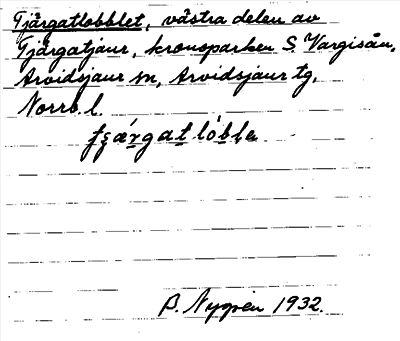 Tjärgatlobblet, västra delen av
Tjärgatjaur, kronoparken S. Vargisån,
Arvidsjaur sn, Arvidsjaur tg,
Norrb. l.
B. Nygren 1932.